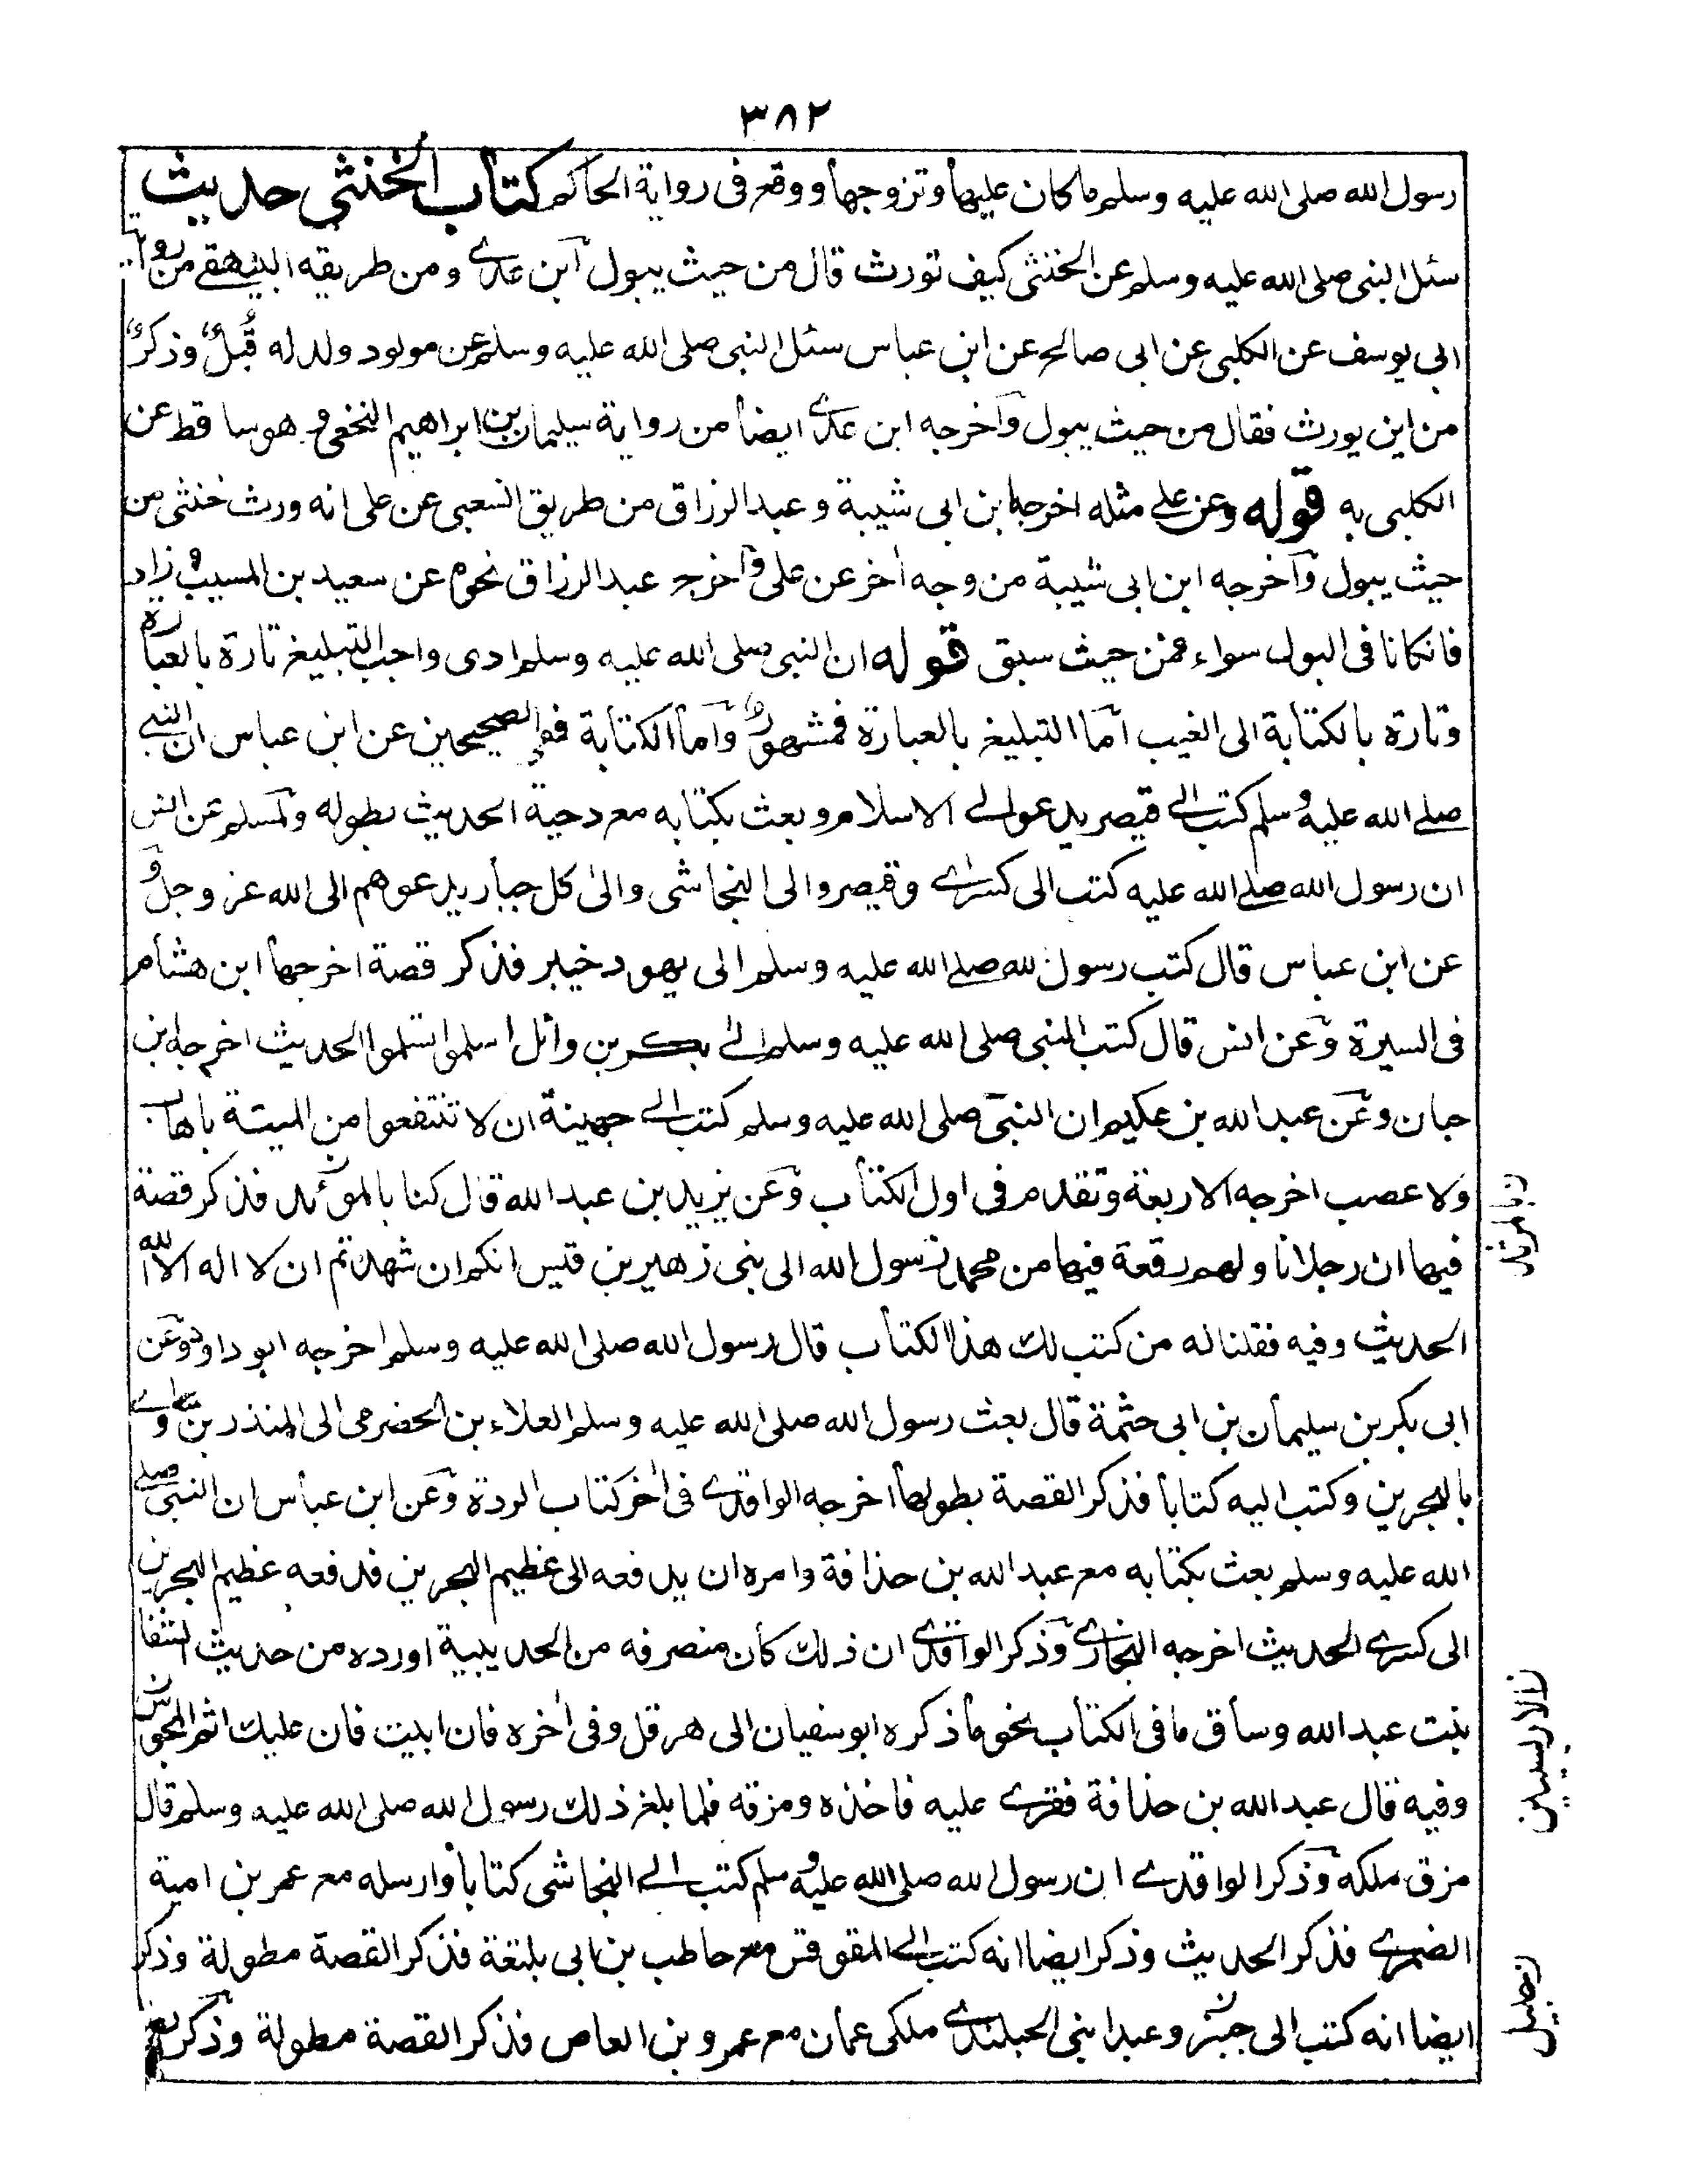 ٣٨٢
رسول الله صلى الله عليه وسلم ما كان عليها وتزوجها ووقع فى رواية الحاكم كتاب الخنثى حديث
سئل النبى صلى الله عليه وسلم عن الخنثى كيف تورث قال من حيث يبول ابن عدے ومن طريقه البيهقے من رواية
ابى يوسف عن الكلبى عن ابى صالح عن ابن عباس سئل النبى صلى الله عليه وسلم عن مولود ولد له قُبلٌ وذكرٌ
من اين يورث فقال من حيث يبول وآخرجه ابن عدے ايضا من رواية سليمان بن ابراهيم النخعى وهو ساقط عن
الكلبى به قوله وعن علے مثله اخرجه ابن ابى شيبة وعبد الرزاق من طريق الشعبى عن على انه ورث خنثى من
حيث يبول وآخرجه ابن ابى شيبة من وجه اٰخر عن على وآخرج عبد الرزاق نحوه عن سعيد بن المسيب وزاد
فان كانا فى البول سواء فمن حيث سبق قوله ان النبى صلى الله عليه وسلم ادى واجب التبليغ تارة بالعبارة
وتارة بالكتابة الى الغيب آما التبليغ بالعبارة فمشهورٌ وآما الكتابة ففى الصحيحين عن ابن عباس ان النبے
صلے الله عليه وسلم كتب الے قيصر يدعوا لے الاسلام وبعث بكتابه مع دحية الحديث بطوله ولمسلم عن انس
ان رسول الله صلے الله عليه كتب الى كسراے وقيصر والى النجاشى والىٰ كل جبار يدعوهم الى الله عز وجل و
عن ابن عباس قال كتب رسول الله صلے الله عليه وسلم الى يهود خيبر فذكر قصة اخرجها ابن هشام
فى السيرة وعن انس قال كتب النبى صلى الله عليه وسلم الے بكر بن وائل اسلموا تسلموا الحديث اخرجه ابن
حبان وعن عبد الله بن عكيم ان النبى صلى الله عليه وسلم كتب الے جهينة ان لا تنتفعوا من الميتة باهاب
ولا عصب اخرجه الاربعة وتقدم فى اول الكتاب وعن يزيد بن عبد الله قال كنا بالموئد فذكر قصة
فيها ان رجلا نا ولهم رقعة فيها من محمد رسول الله الى بنى زهير بن قيس انكم ان شهدتم ان لا اله الا الله
الحديث وفيه فقلنا له من كتب لك هذا الكتاب قال رسول الله صلى الله عليه وسلم اخرجه ابو داود وعن
ابى بكر بن سليمان بن ابى حثمة قال بعث رسول الله صلى الله عليه وسلم العلاء بن الحضرمى الى المنذر بن ساوے
بالبحرين وكتب اليه كتابا فذكر القصة بطولها اخرجه الواقدے فى اٰخر كتاب الردة وعن ابن عباس ان النبى صلے
الله عليه وسلم بعث بكتابه مع عبد الله بن حذافة وامره ان يدفعه الى عظيم البحرين فدفعه عظيم البحرين
الى كسرے الحديث اخرجه البخارے وذكر الواقدے ان ذلك كان منصرفه من الحديبية اورده من حديث الشفا
بنت عبد الله وساق ما فى الكتاب بنحو ما ذكره ابو سفيان الى هرقل وفى اٰخره فان ابيت فان عليك اثم المجوس
وفيه قال عبد الله بن حذافة فقرے عليه فاخذه ومزقه فلما بلغ ذلك رسول الله صلى الله عليه وسلم قال
مزق ملكه وذكر الواقدے ان رسول الله صلى الله عليه وسلم كتب الے النجاشى كتابا وارسله مع عمر بن امية
الضمرے فذكر الحديث وذكر ايضا انه كتب الے المقوقس مع حاطب بن ابى بلتعة فذكر القصة مطولة وذكر
ايضا انه كتب الى جيفر وعبد ابنى الجلندے ملكى عمان مع عمرو بن العاص فذكر القصة مطولة وذكر